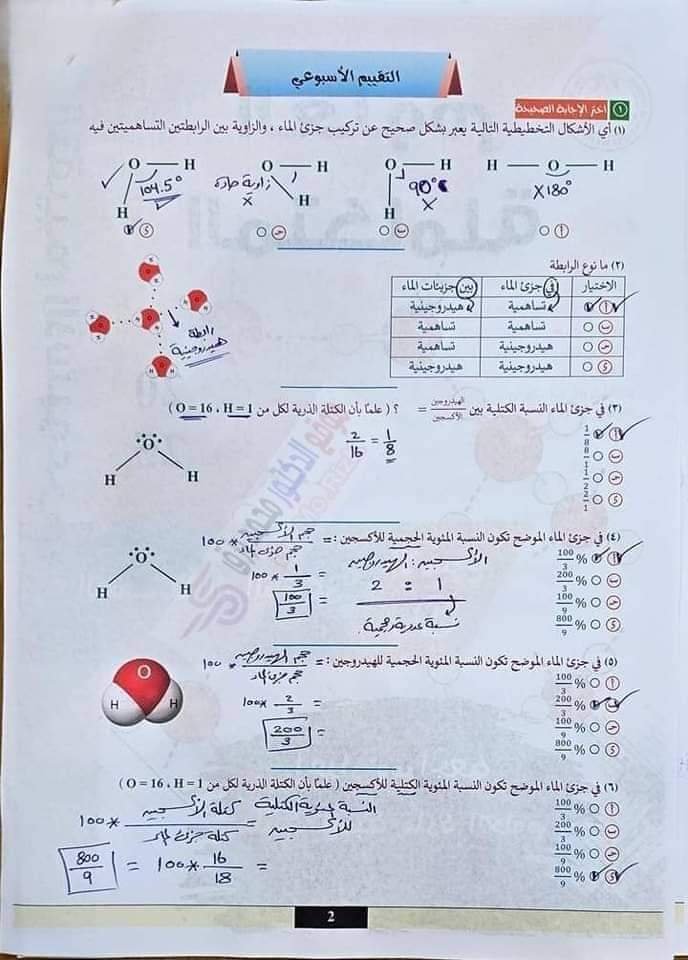 التقييم الأسبوعي
١ اختر الإجابة الصحيحة
(١) أي الأشكال التخطيطية التالية يعبر بشكل صحيح عن تركيب جزئ الماء ، والزاوية بين الرابطتين التساهميتين فيه
H — O — H
X 180°
أ
O — H
H
90°
X
ب
O — H
H
زاوية حادة
X
ج
O — H
H
104.5°
د
(٢) ما نوع الرابطة
الاختيار في جزئ الماء بين جزيئات الماء
أ تساهمية هيدروجينية
ب تساهمية تساهمية
ج هيدروجينية تساهمية
د هيدروجينية هيدروجينية
رابطة
هيدروجينية
(٣) في جزئ الماء النسبة الكتلية بين الهيدروجين / الأكسجين = ؟ ( علمًا بأن الكتلة الذرية لكل من O = 16 ، H = 1 )
أ 1/8
ب 8/1
ج 1/2
د 2/1
2/16 = 1/8
O
H H
(٤) في جزئ الماء الموضح تكون النسبة المئوية الحجمية للأكسجين : = حجم الأكسجين / حجم جزئ الماء * 100
أ 100/3 %
ب 200/3 %
ج 100/9 %
د 800/9 %
= 1/3 * 100
= 100/3
الأكسجين : الهيدروجين
2 : 1
نسبة عددية وحجمية
O
H H
(٥) في جزئ الماء الموضح تكون النسبة المئوية الحجمية للهيدروجين : = حجم الهيدروجين / حجم جزئ الماء * 100
أ 100/3 %
ب 200/3 %
ج 100/9 %
د 800/9 %
= 2/3 * 100
= 200/3
O
H H
(٦) في جزئ الماء الموضح تكون النسبة المئوية الكتلية للأكسجين ( علمًا بأن الكتلة الذرية لكل من O = 16 ، H = 1 )
أ 100/3 %
ب 200/3 %
ج 100/9 %
د 800/9 %
النسبة المئوية الكتلية
للأكسجين = كتلة الأكسجين / كتلة جزئ الماء * 100
= 16/18 * 100 = 800/9
2